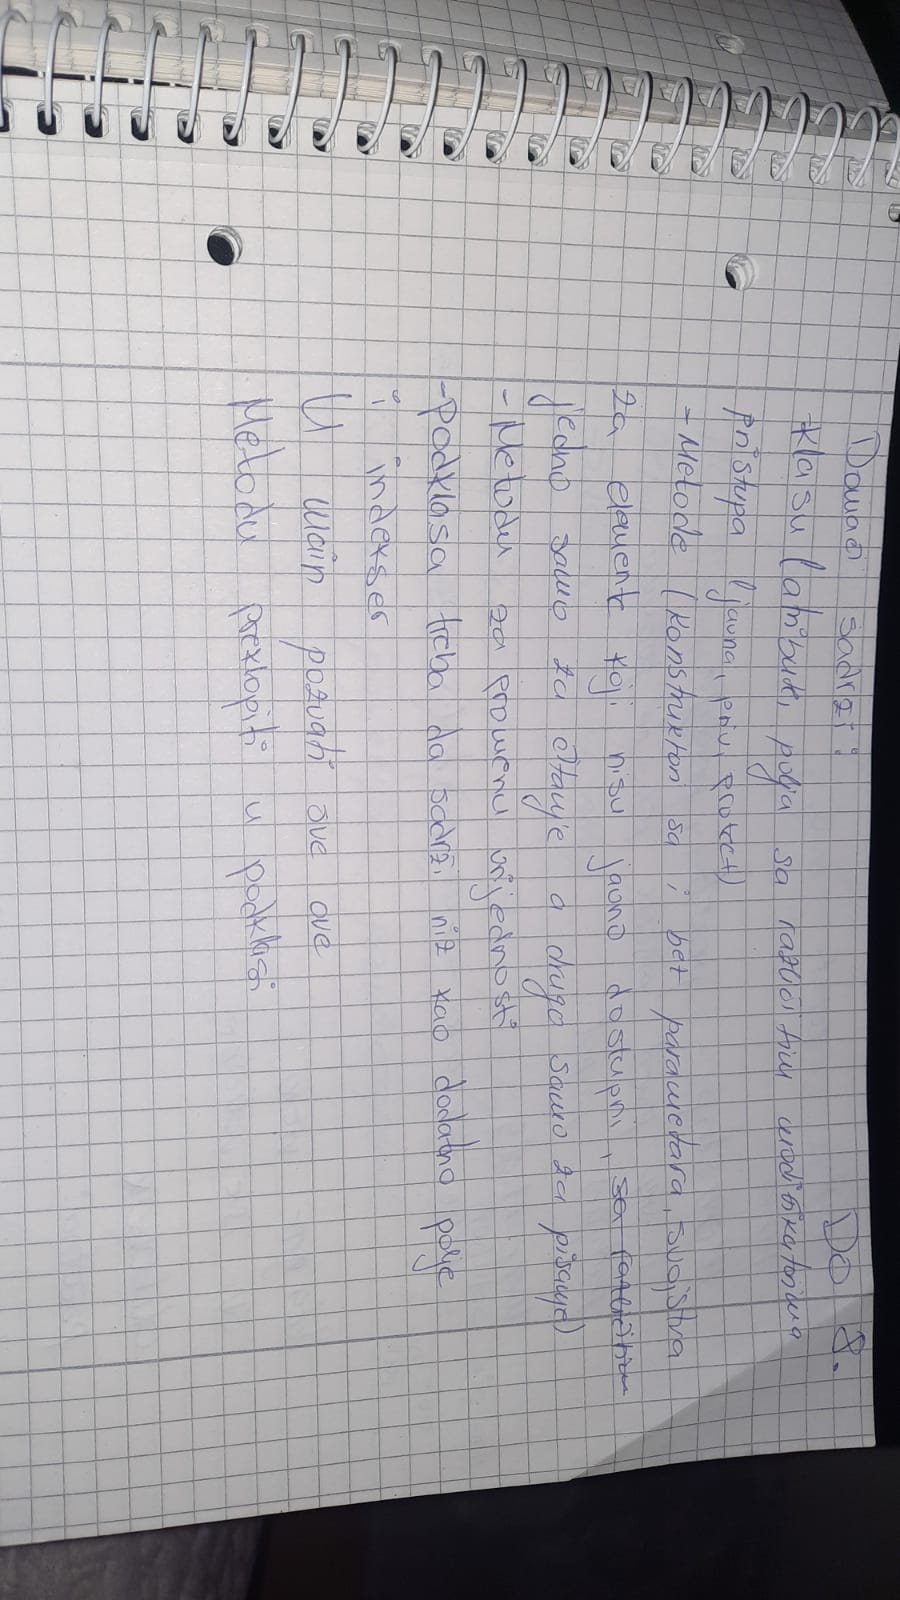 Domaći sadrži: Do 8.
-klasu (atributi, polja sa različitim modifikatorima
pristupa (javna, priv, protect)
- Metode (konstruktori sa i bez parametara, svojstva
za elemente koji nisu javno dostupni, sa različitim
jedno samo za čitanje a drugo samo za pisanje)
- Metodu za promenu vrijednosti
- Podklasa treba da sadrži niz kao dodatno polje
i indekser
U main pozvati sve ove
Metodu preklopiti u podklasi